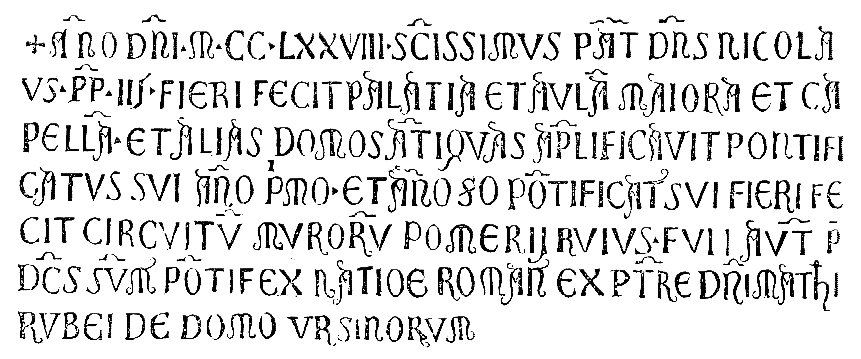 + AÑO DÑI·M·CC·LXXVIII·SC̄ISSIMVS PAT̄ DÑS NICOLA
VS·PP̄·IIJ·FIERI FECIT PALATIA ET AVLĀ MAIORA ET CA
PELLĀ·ET ALIAS DOMOS ĀTIQVAS AP̄LIFICAVIT PONTIFI
CATVS SVI AÑO P̄MO·ET AÑO 8O PŌTIFICAT̄ SVI FIERI FE
CIT CIRCVITV̄ MVRORV̄ POMERIJ RVIVS·FVII AVT̄ P̄
DC̄S SVM̄ PŌTIFEX NATIOE ROMAÑ EX PT̄RE DÑI MATHI
RVBEI DE DOMO VRSINORVM